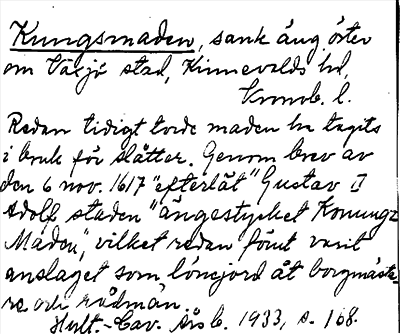 Kungsmaden, sank äng öster
om Växjö stad, Kinnevalds hd,
Kronob. l.
Redan tidigt torde maden ha tagits
i bruk för slåtter. Genom brev av
den 6 nov. 1617 "efterlät" Gustav II
Adolf staden "ängestycket Konungz
Maden", vilket redan förut varit
anslaget som lönejord åt borgmästa-
re och rådmän.
Hylt.-Cav. årsb. 1933, s. 168.